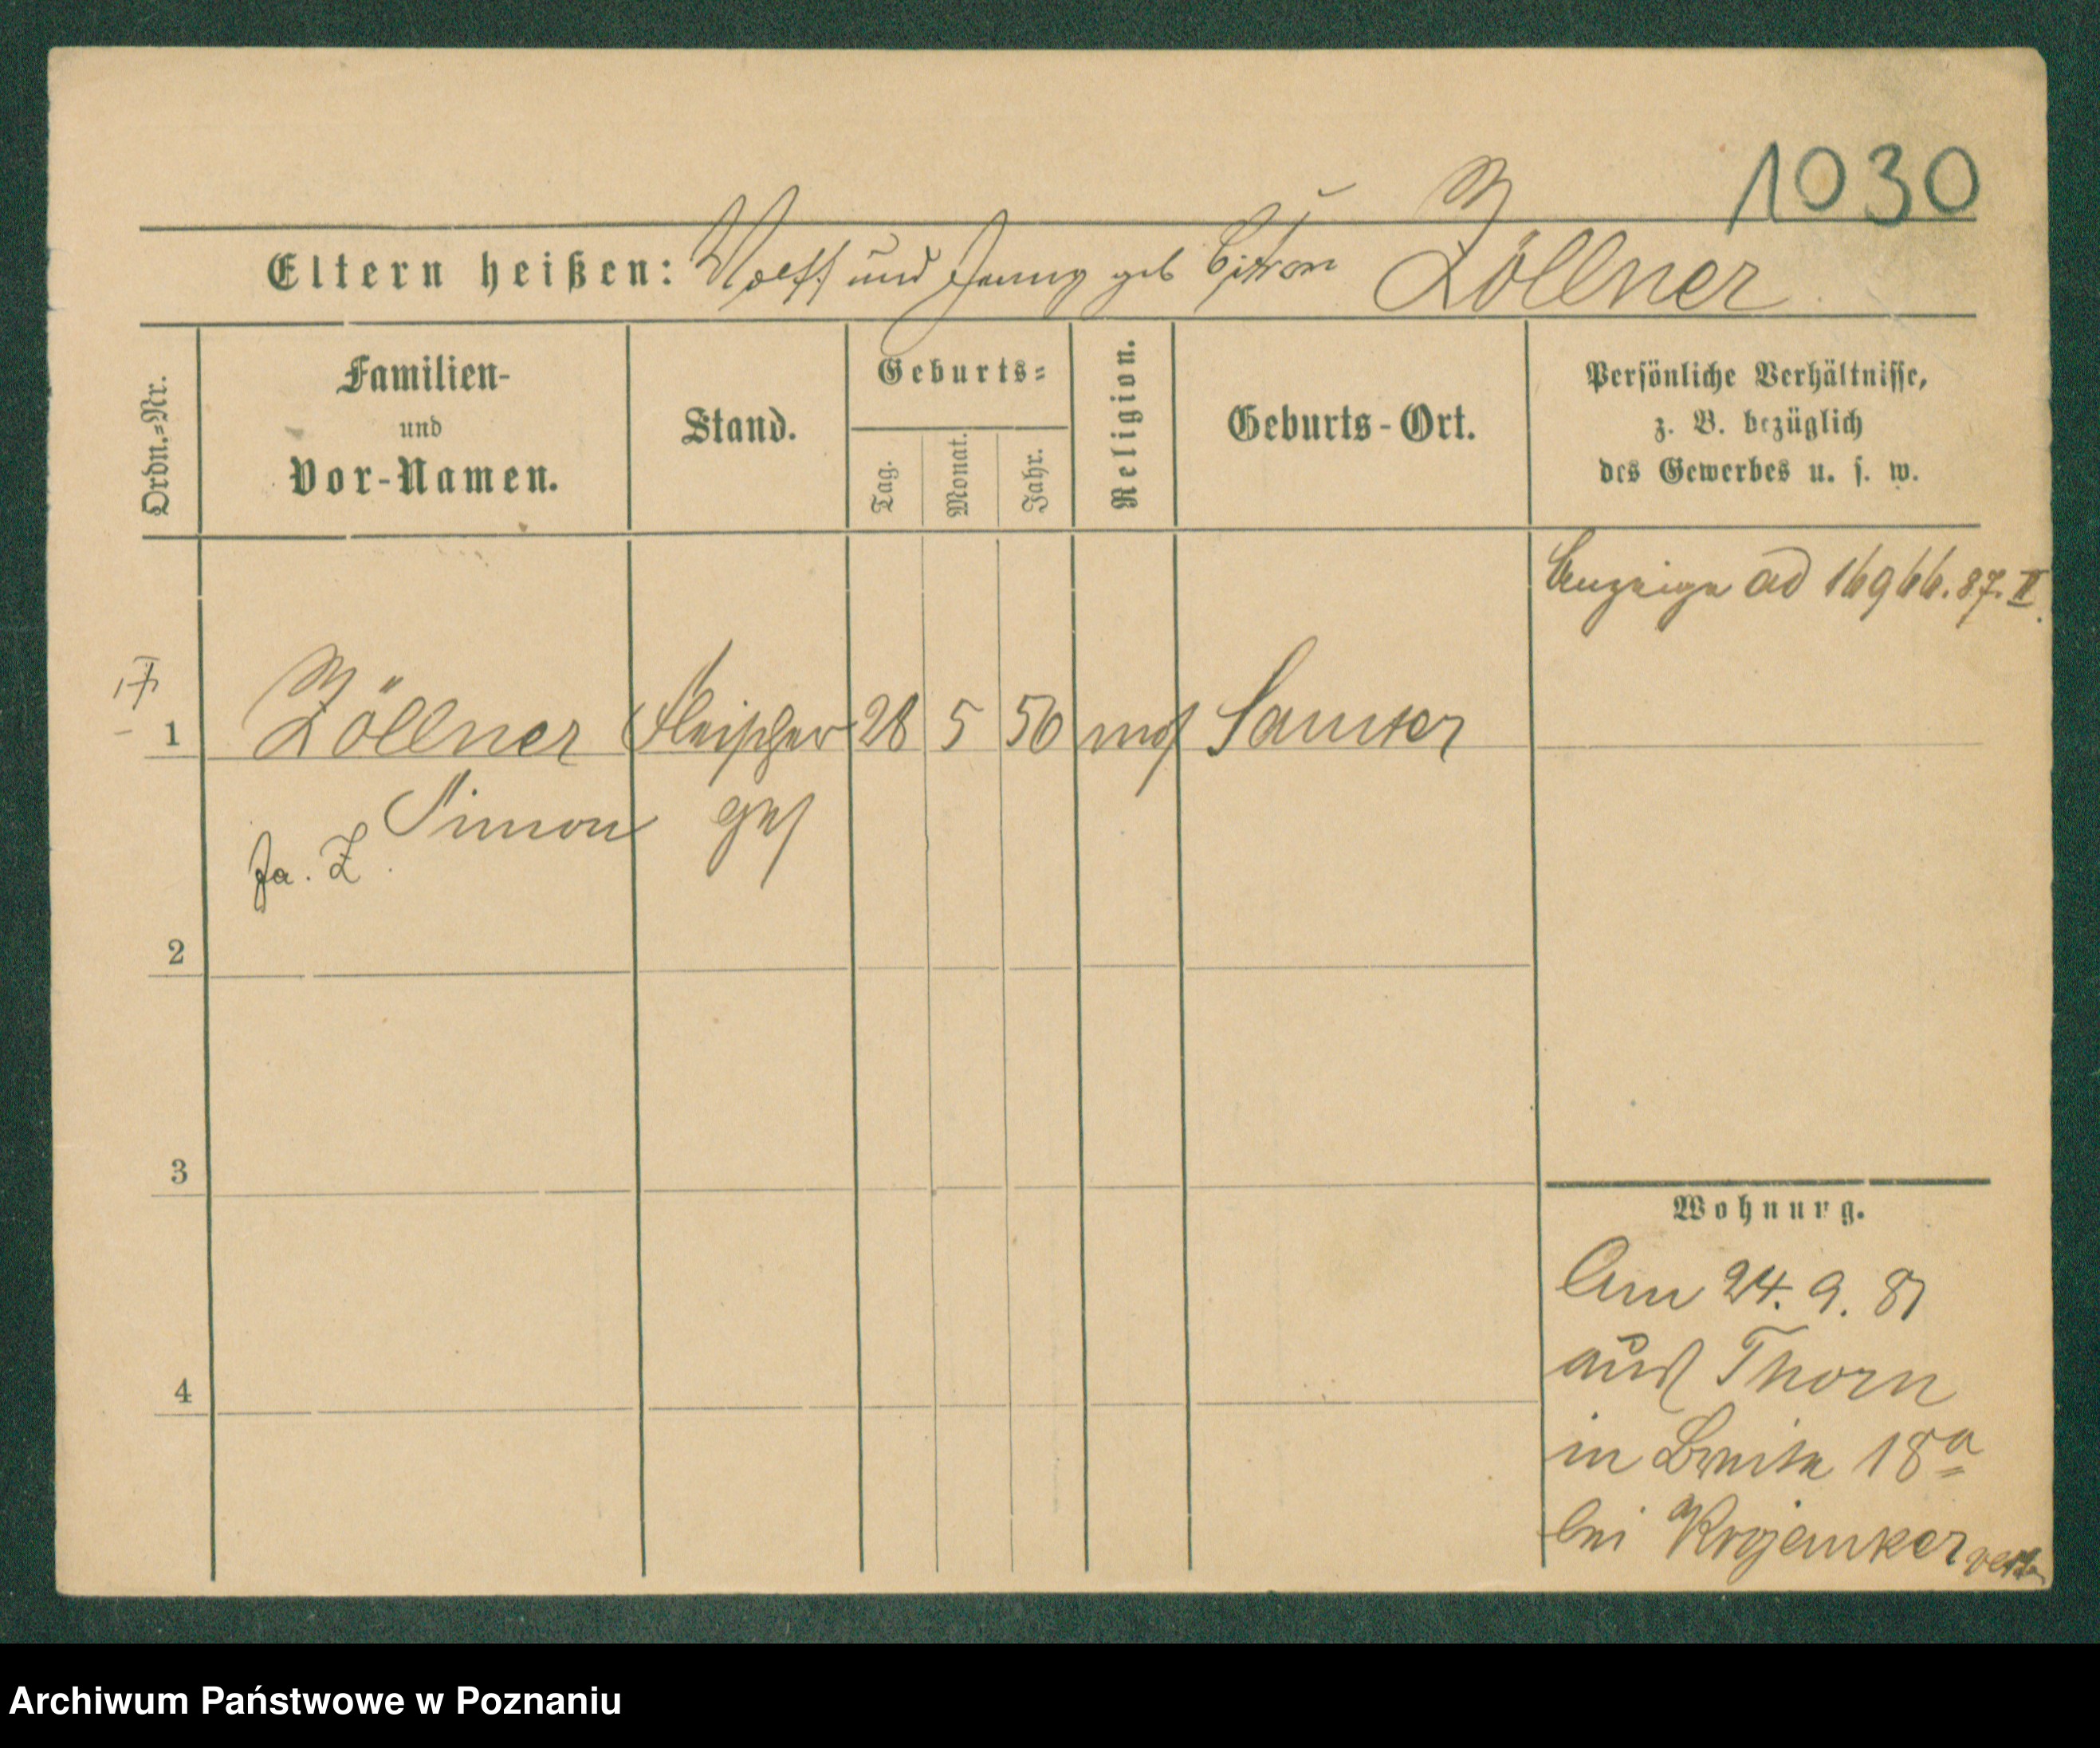 1030
Eltern heißen: Wolff und Jenny geb Citron Zöllner
Ordn.=Nr.
Familien-
und
Vor-Namen.
Stand.
Geburts=
Tag.
Monat.
Jahr.
Religion.
Geburts-Ort.
Persönliche Verhältnisse,
z. B. bezüglich
des Gewerbes u. s. w.
Anzeige ad 16966.87.II.
1 Zöllner Fleischer 28 5 50 mos Samter
Simon ges
fa. Z.
2
3
4
Wohnung.
Am 24. 9. 87
aus Thorn
in Breite 18a
bei Krojanker
Archiwum Państwowe w Poznaniu